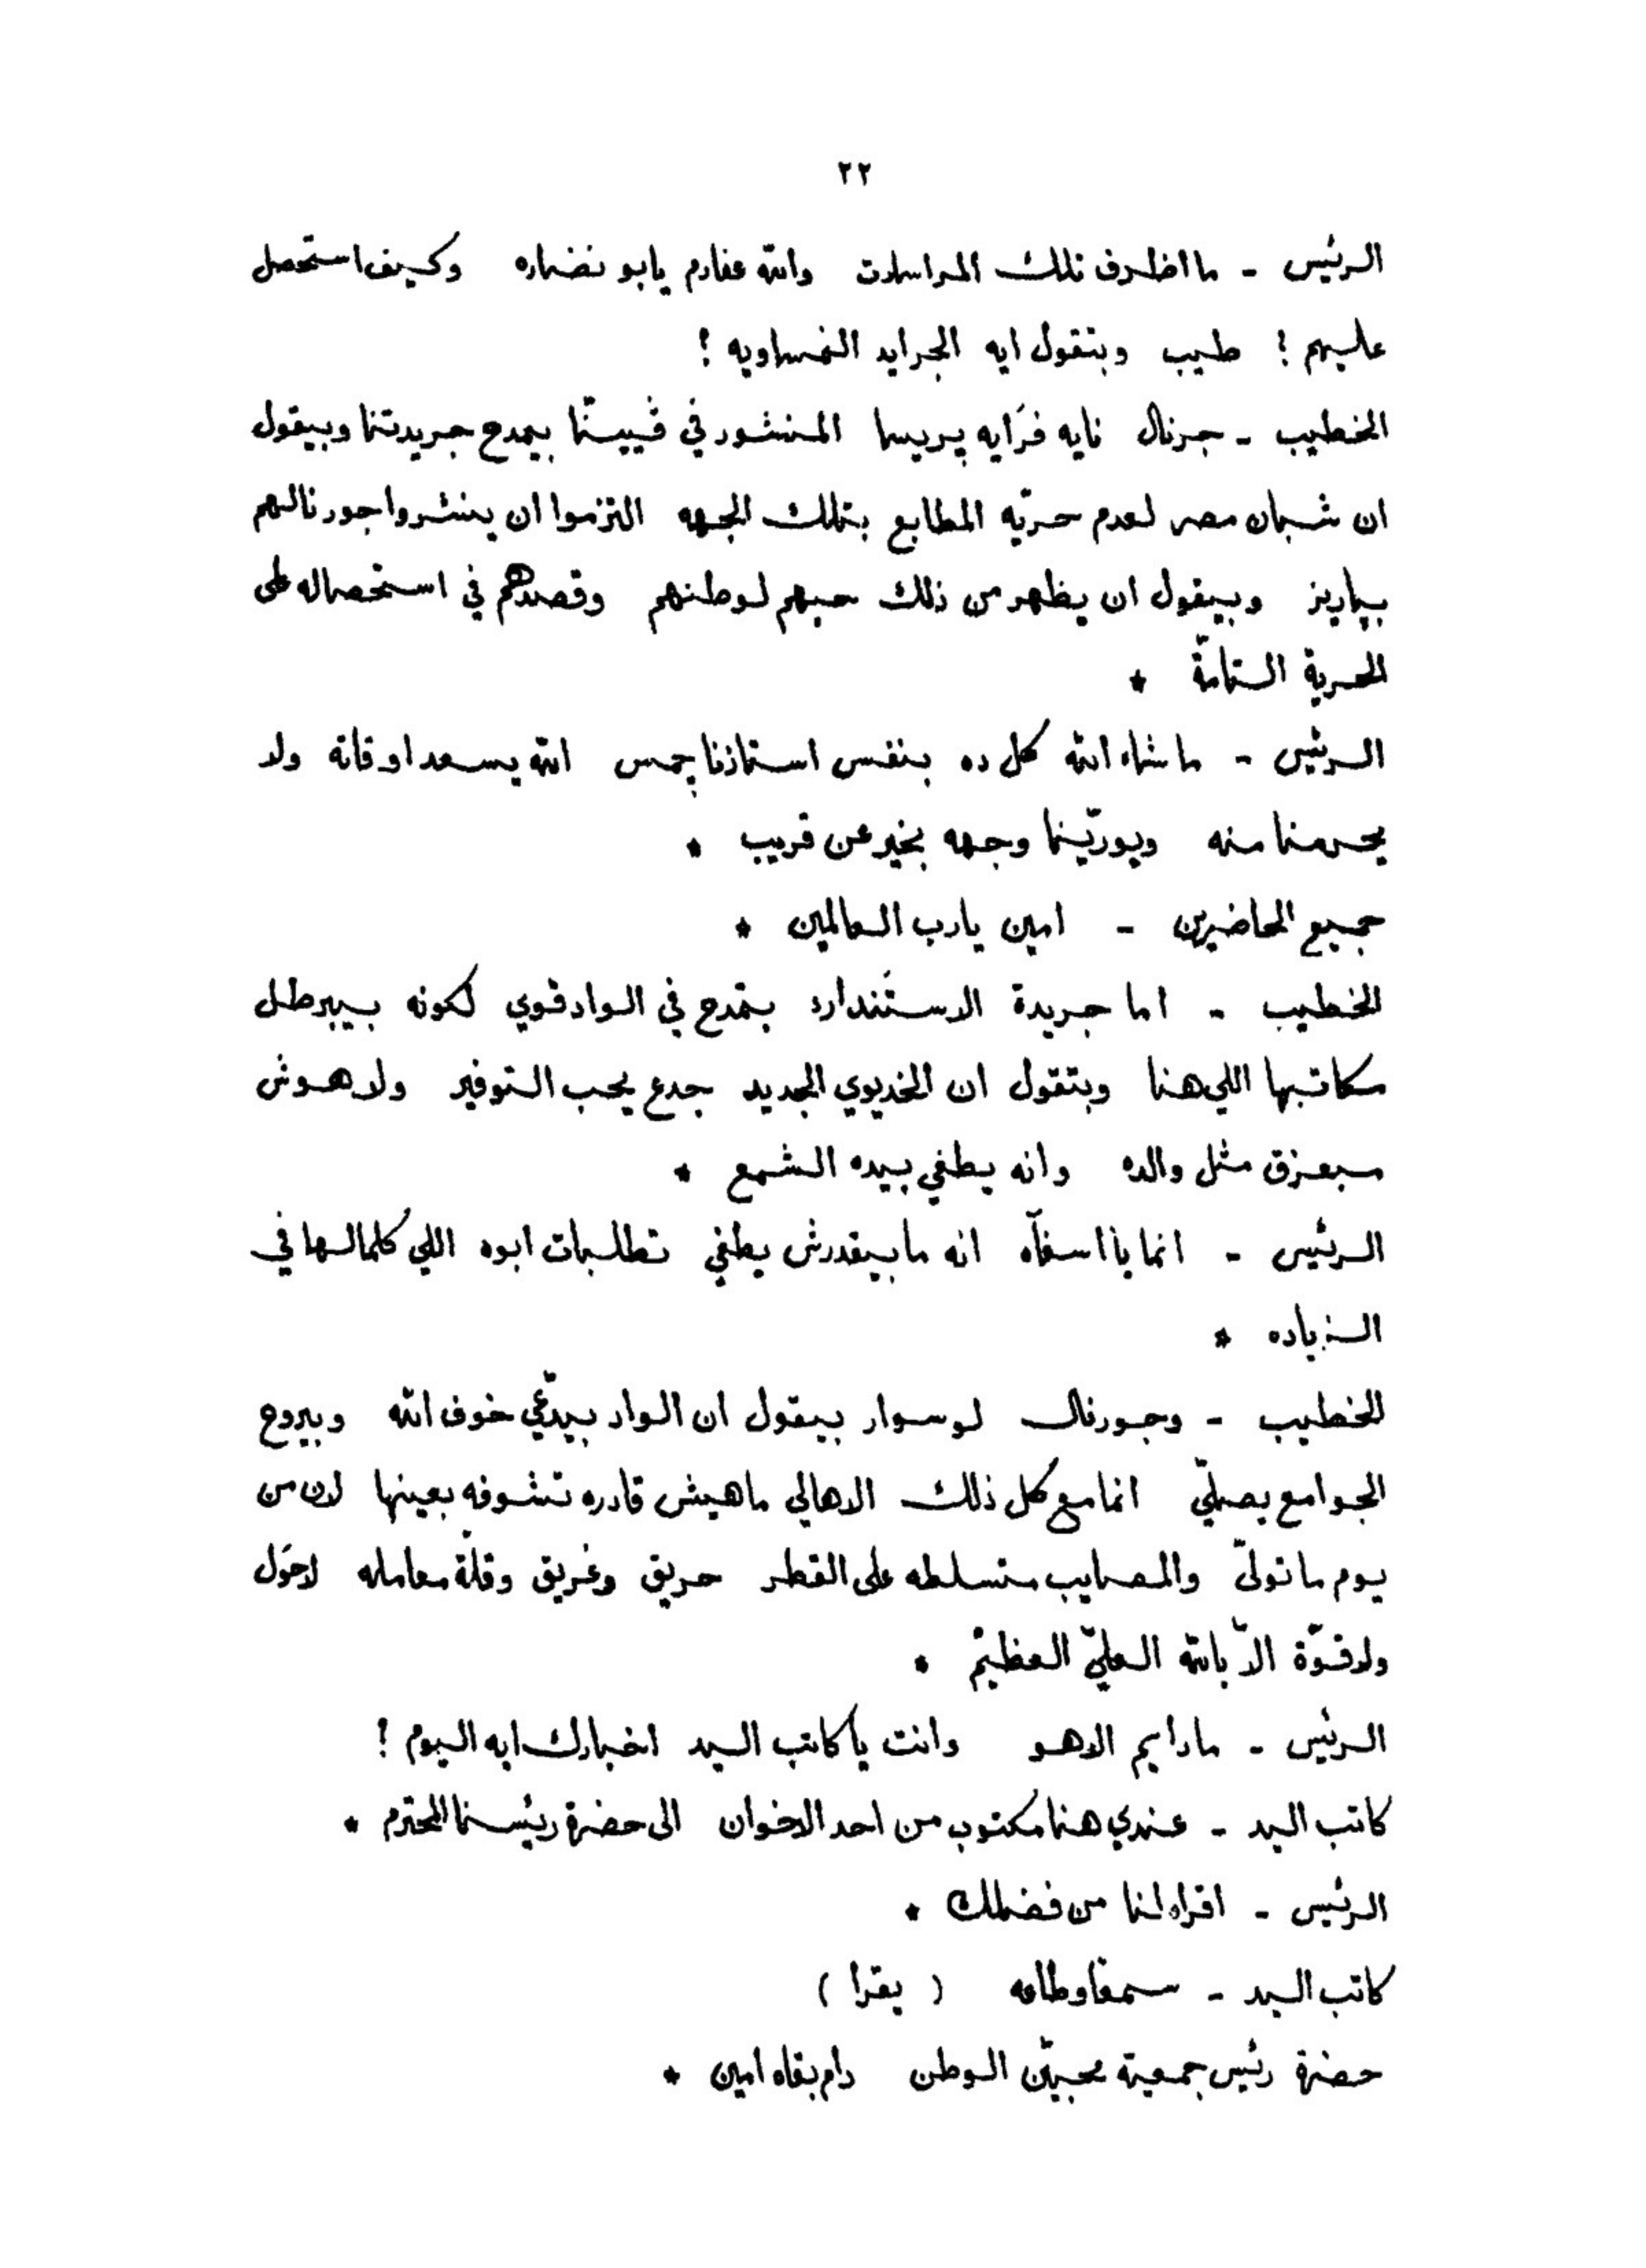 ٢٢
الرئيس - ما اظرف تلك المراسلات والله عفارم يابو نضاره وكيف استحصل
عليهم ! طيب وبتقول ايه الجرايد النمساويه !
الخطيب - جرنال نايه فرَايه پريسا المنشور في ڤيينّا بيمدح جريدتنا وبيقول
ان شبان مصر لعدم حريّه المطابع بتلك الجهه التزموا ان ينشروا جورنالهم
بپاريز وبيقول ان يظهر من ذلك حبهم لوطنهم وقصدهم في استحصاله على
الحرية التامّة *
الرئيس - ما شاء الله كل ده بنفس استاذنا چمس الله يسعد اوقاته ولا
يحرمنا منه ويورّينا وجهه بخير عن قريب *
جميع الحاضرين - امين يارب العالمين *
الخطيب - اما جريدة الاستَندارد بتمدح في الواد قوي لكونه بيبرطل
مكاتبها اللي هنا وبتقول ان الخديوي الجديد جدع يحب التوفير ولا هوش
مبعزق مثل والده وانه يطفي بيده الشمع *
الرئيس - انما يا اسفآه انه مابيقدرش يطفي تطلبات ابوه اللي كلمالها في
الزياده *
الخطيب - وجورنال لوسوار بيقول ان الواد بيدّعي خوف الله وبيروح
الجوامع يصلّي انما مع كل ذلك الاهالي ماهيش قادره تشوفه بعينها لان من
يوم ما تولّى والمصايب متسلطه على القطر حريق وغريق وقلّة معامله لاحَول
ولا قوّة الاّ بالله العليّ العظيم *
الرئيس - مادايم الا هو وانت يا كاتب السر اخبارك ايه اليوم !
كاتب السر - عندي هنا مكتوب من احد الاخوان الى حضرة ريئسنا المحترم *
الرئيس - اقراه لنا من فضلك *
كاتب السر - سمعًا وطاعه ( يقرا )
حضرة رئيس جمعية محبيّن الوطن دام بقاه امين *